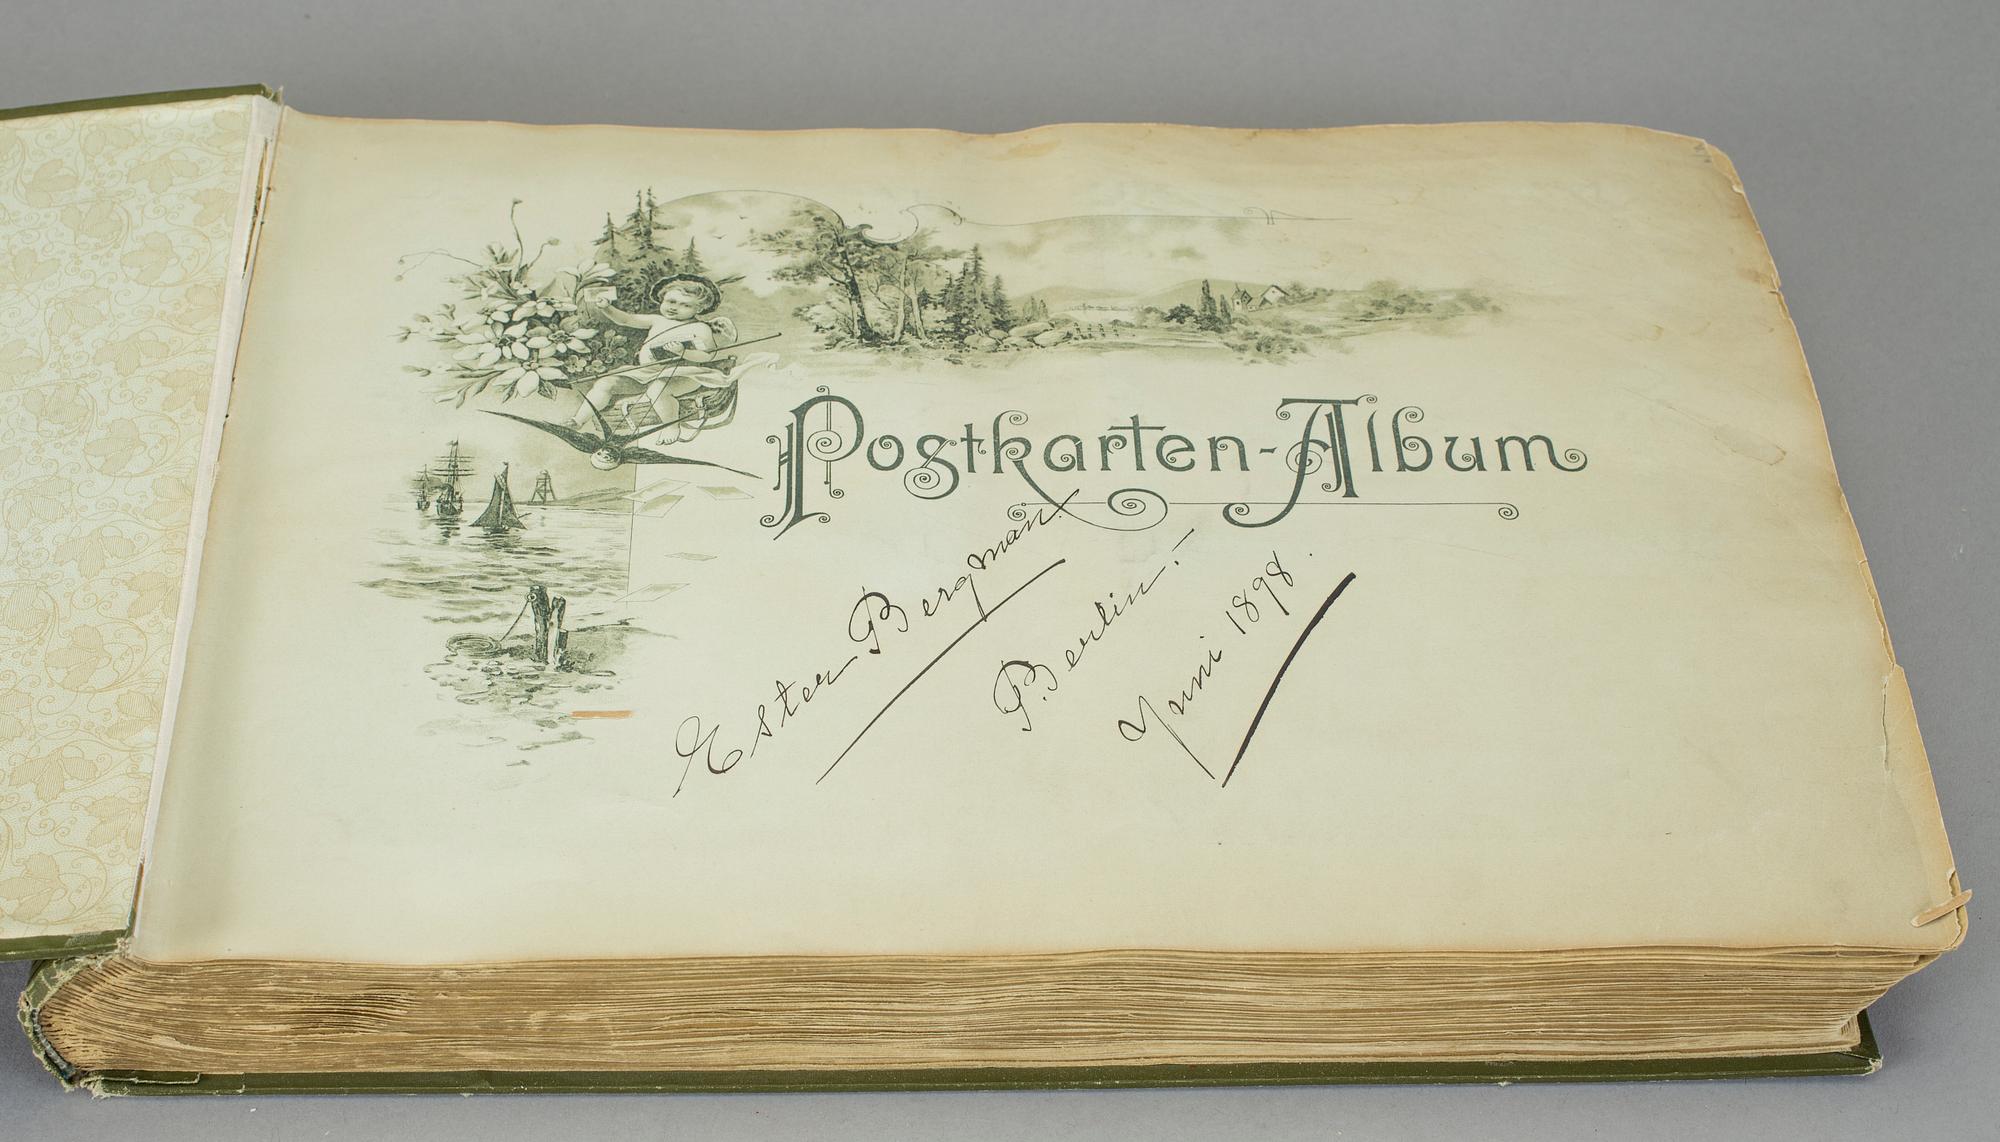 Postkarten-Album
Ester Bergman.
Berlin.-
Juni 1898.